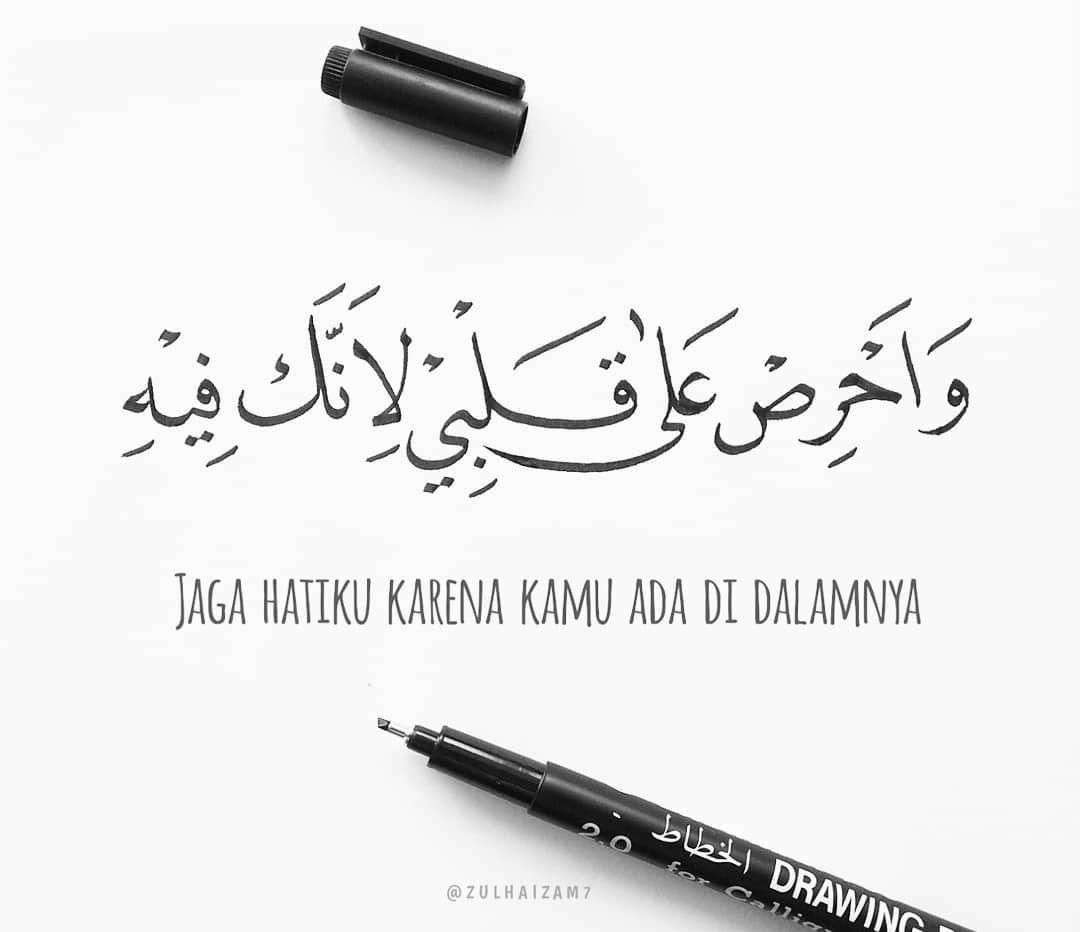 وَاَحْرِصْ عَلٰى قَلْبِيْ لِاَنَّكَ فِيْهِ
JAGA HATIKU KARENA KAMU ADA DI DALAMNYA
2.0 الخطاط DRAWING
for
@ZULHAIZAM7